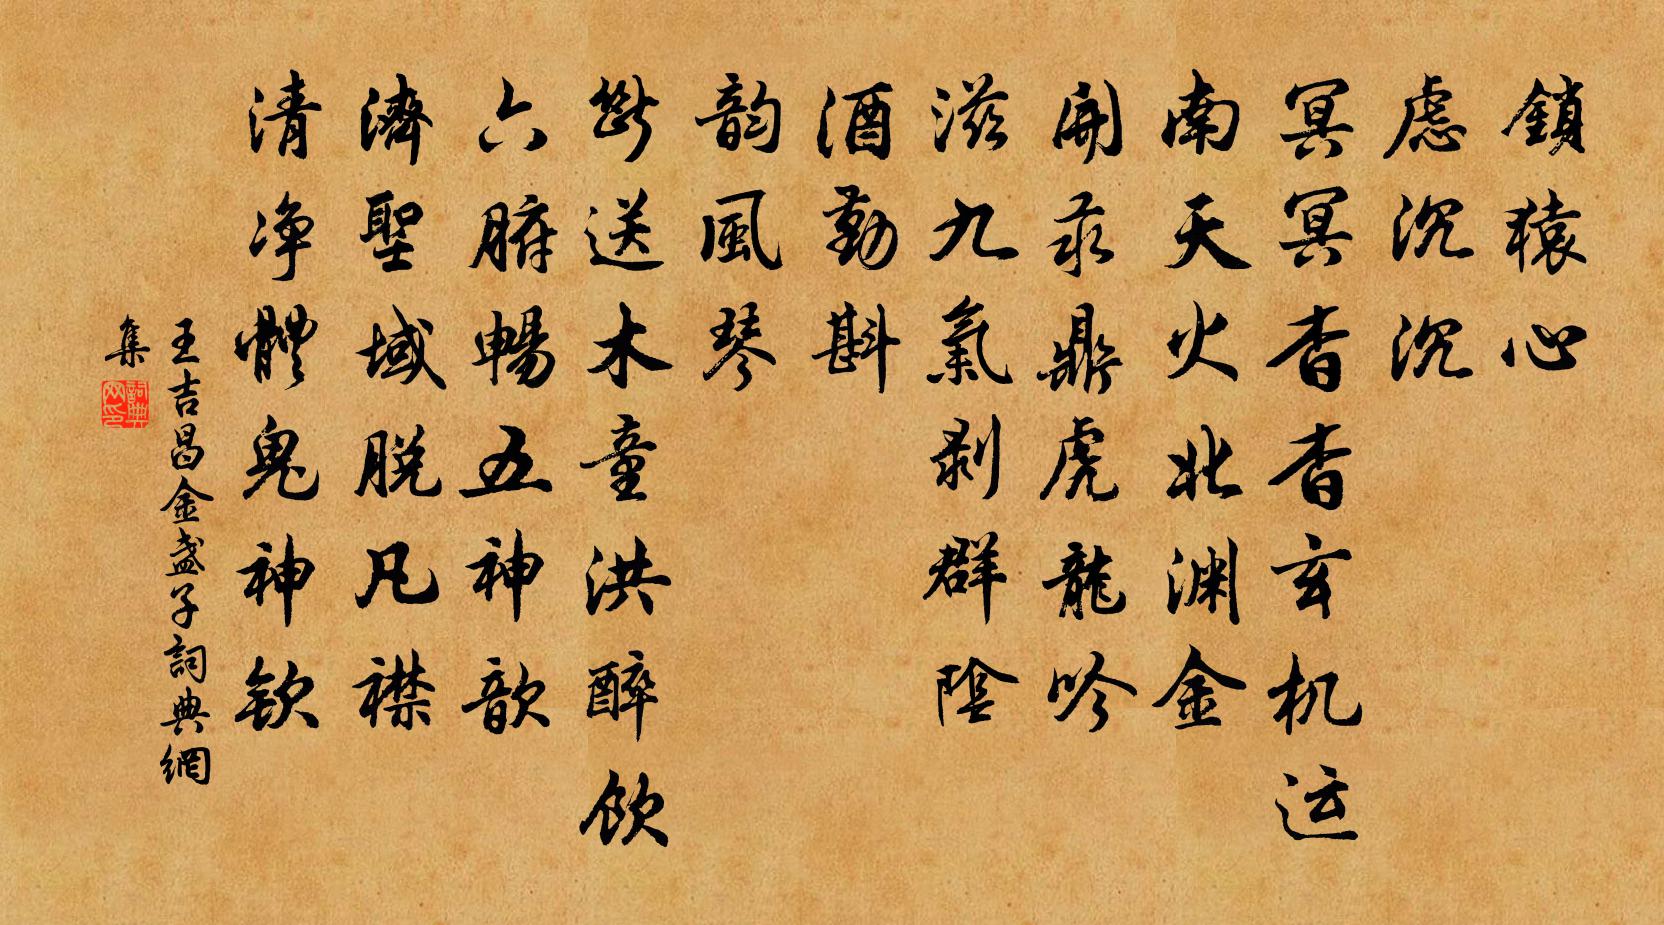 鎖猿心
慮沉沉
冥冥杳杳玄机运
南天火北渊金
開汞鼎虎龍吟
滋九氣剥群陰
酒勤斟
韵風琴
斷送木童洪醉飲
六腑暢五神歆
濟聖域脱凡襟
清净體鬼神欽
王吉昌金盞子詞典網
集
詞典网印